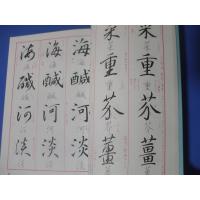 菜重芥薑
菜重芥薑
海鹹河淡
海鹹河淡
海鹹河淡